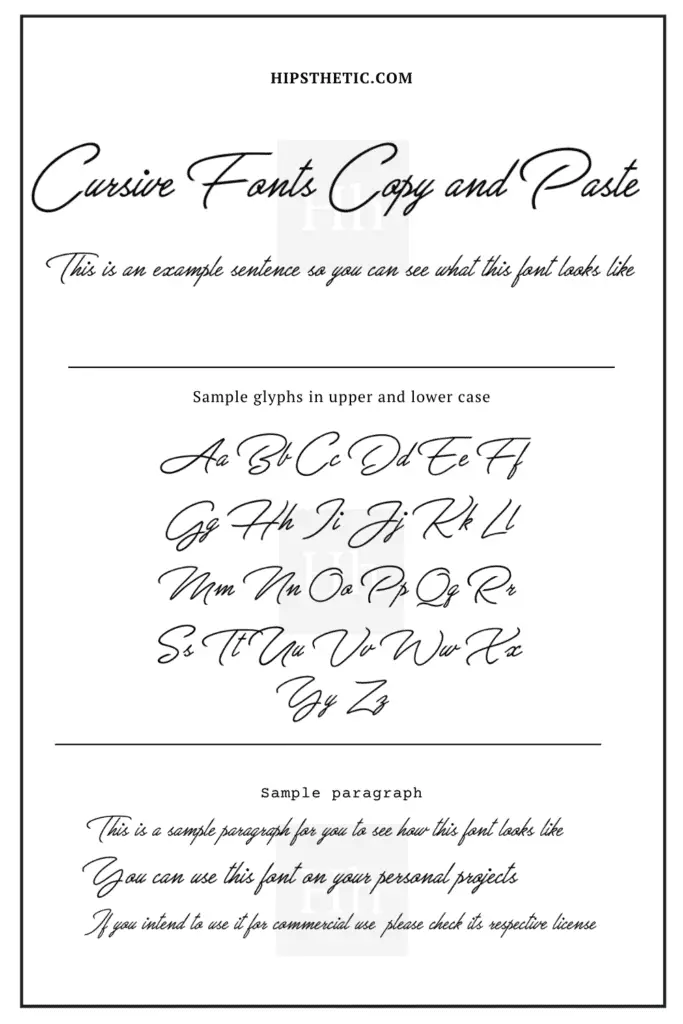 HIPSTHETIC.COM
Cursive Fonts Copy and Paste
This is an example sentence so you can see what this font looks like
Sample glyphs in upper and lower case
Aa Bb Cc Dd Ee Ff
Gg Hh Ii Jj Kk Ll
Mm Nn Oo Pp Qq Rr
Ss Tt Uu Vv Ww Xx
Yy Zz
Sample paragraph
This is a sample paragraph for you to see how this font looks like
You can use this font on your personal projects
If you intend to use it for commercial use please check its respective license